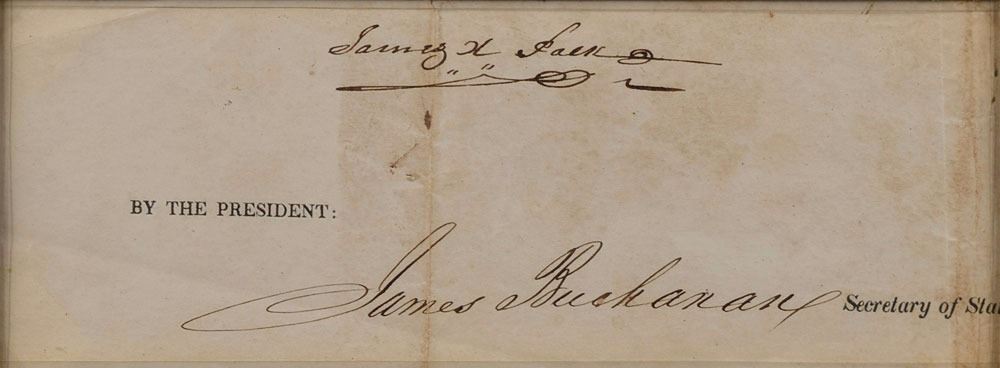 James K Polk
BY THE PRESIDENT:
James Buchanan Secretary of Sta